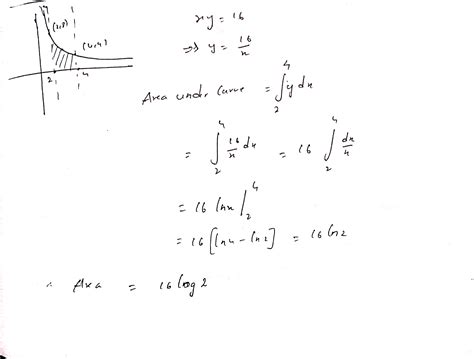 xy = 16
⇒ y = 16/x
(2,8)
(4,4)
2 4
Area under curve = ∫₂⁴ y dx
= ∫₂⁴ 16/x dx = 16 ∫₂⁴ dx/x
= 16 lnx |₂⁴
= 16 [ln4 - ln2] = 16 ln2
∴ Area = 16 log 2